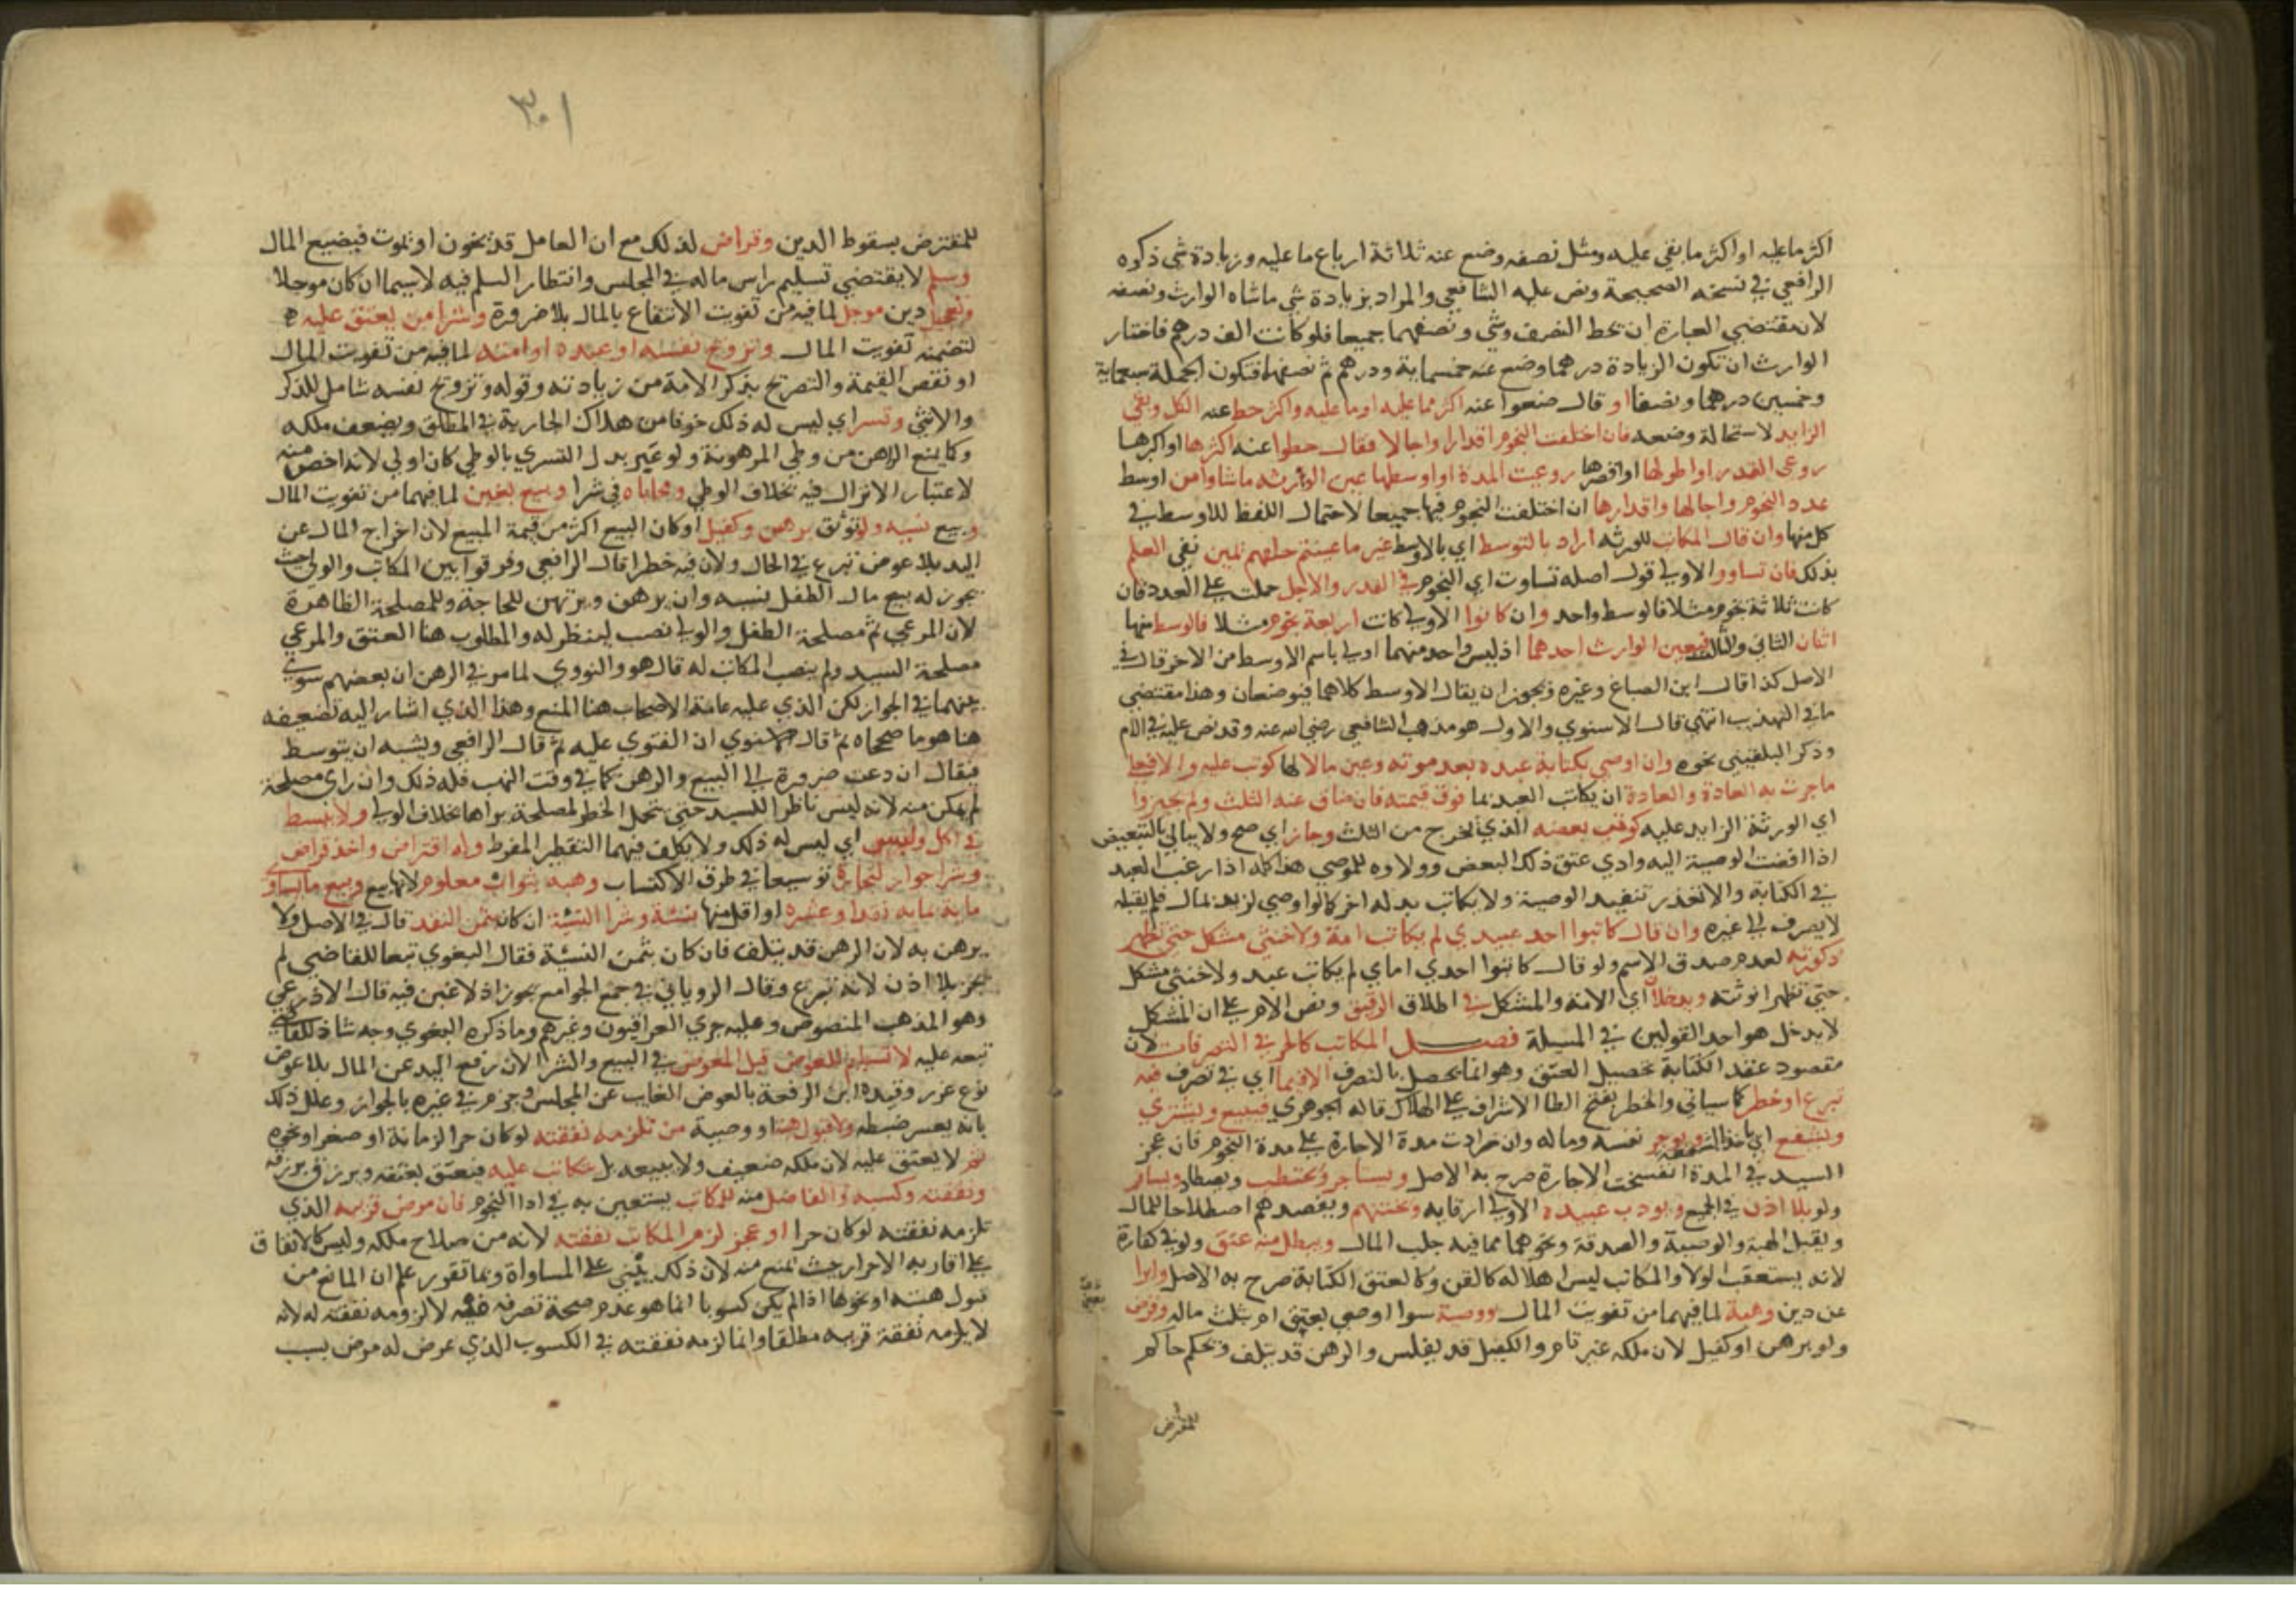 اكثر ما عليه او اكثر ما بقي عليه ومثل نصفه وضع عنه ثلاثة ارباع ما عليه وزيادة شي ذكره
الرافعي في نسخه الصحيحة ونص عليه الشافعي والمراد بزيادة شي ما شاه الوارث ونصفه
لان مقتضي العبارة ان يحط النصف وشي ونصفهما جميعا فلو كانت الف درهم فاختار
الوارث ان تكون الزيادة درهما وضع عنه خمسماية ودرهم ثم نصفها فتكون الجملة سبعماية
وخمسين درهما ونصفا او قال ضعوا عنه اكثر مما عليه او ما عليه واكثر حط عنه الكل وبقي
الزايد لاستحالة وضعه فان اختلفت النجوم اقدارا واجالا فقال حطوا عنه اكثرها او اكبرها
روعي القدر او اطولها او اقصرها روعيت المدة او اوسطها عين الوارثه ما شاوا من اوسط
عدد النجوم واجالها واقدارها ان اختلفت النجوم فيها جميعا لاحتمال اللفظ للاوسط في
كل منها وان قال المكاتب للورثه اراد بالتوسط اي بالاوسط غير ما عينتم حلفهم يمين نفي العلم
بذلك فان تساووا الاولي قول اصله تساوت اي النجوم في القدر والاجل حملت علي العدد فان
كانت ثلاثة نجوم مثلا فالوسط واحد وان كانوا الاولي كانت اربعة نجوم مثلا فالوسط منها
اثنان الثاني والثالث فيعين الوارث احدهما اذ ليس واحد منهما اولي باسم الاوسط من الاخر قال في
الاصل كذا قال ابن الصباغ وغيره ويجوز ان يقال الاوسط كلاهما فيوضعان وهذا مقتضي
ما في التهذيب انتهي قال الاسنوي والاول هو مذهب الشافعي رضي الله عنه وقد نص عليه في الام
وذكر البلقيني نحوه وان اوصي بكتابة عبده بعد موته وعين مالا لها كوتب عليه والا فبما
ماجرت به العادة والعادة ان يكاتب العبد بما فوق قيمته فان ضاق عنه الثلث ولم يجيزوا
اي الورثة الزايد عليه كوتب بعضه الذي يخرج من الثلث وجاز اي صح ولا يبالي بالتبعيض
اذا افضت الوصية اليه وادي عتق ذلك البعض وولاوه للموصي هذا كله اذا رغب العبد
في الكتابة والا تعذر تنفيذ الوصية ولا يكاتب بدله اخر كما لو اوصي لزيد بمال فلم يقبله
لا يصرف الي غيره وان قال كاتبوا احد عبيدي لم يكاتب امة ولا خنثي مشكل حتي تظهر
ذكورته لعدم صدق الاسم ولو قال كاتبوا احدي اماي لم يكاتب عبد ولا خنثي مشكل
حتي تظهر انوثته ويدخلان اي الامة والمشكل في اطلاق الرقيق ونص الام علي ان المشكل
لا يدخل هو احد القولين في المسيلة فصل المكاتب كالحر في التصرفات لان
مقصود عقد الكتابة تحصيل العتق وهو انما يحصل بالتصرف الا فيما اي في تصرف فيه
تبرع او خطر كما سياتي والخطر بفتح الطا الاشراف علي الهلاك قاله الجوهري فيبيع ويشتري
ويشفع اي ياخذ بالشفعة ويوجر نفسه وماله وان زادت مدة الاجارة علي مدة النجوم فان عجز
السيد في المدة انفسخت الاجارة صرح به الاصل ويستاجر ويحتطب ويصطاد ويسافر
ولو بلا اذن في الجميع ويودب عبيده الاولي ارقايه ويختنهم ويفصدهم اصطلاحا للمال
ويقبل الهبة والوصية والصدقة ونحوهما مما فيه جلب المال ويبطل منه عتق ولو في كفارة
لانه يستعقب الولا والمكاتب ليس اهلا له كالقن وكالعتق الكتابة صرح به الاصل وابرا
عن دين وهبة لما فيهما من تفويت المال ووصية سوا اوصي بعتق ام بثلث ماله وقرض
ولو برهن او كفيل لان ملكه غير تام والكفيل قد يفلس والرهن قد يتلف ويحكم حاكم
للمقترض
٣٠١
للمقترض بسقوط الدين وقراض لذلك مع ان العامل قد يخون او يموت فيضيع المال
وسلم لا يقتضي تسليم راس ماله في المجلس وانتظار السلم فيه لا سيما ان كان موجلا
وتعجيل دين موجل لما فيه من تفويت الانتفاع بالمال بلا ضرورة وشرا من يعتق عليه
لتضمنه تفويت المال وتزويج نفسه او عبده او امته لما فيه من تفويت المال
او نقص القيمة والتصريح بذكر الامة من زيادته وقوله وتزويج نفسه شامل للذكر
والانثي وتسر اي ليس له ذلك خوفا من هلاك الجارية في الطلق ويضعف ملكه
وكما يمنع الراهن من وطي المرهونة ولو عبر بدل التسري بالوطي كان اولي لانه اخص منه
لاعتبار الانزال فيه بخلاف الوطي ومحاباه في شرا وبيع بغبن لما فيهما من تفويت المال
وبيع نسيه ولو توثق برهن وكفيل او كان البيع اكثر من قيمة المبيع لان اخراج المال عن
اليد بلا عوض تبرع في الحال ولان فيه خطرا قال الرافعي وفرقوا بين المكاتب والولي حيث
يجوز له بيع مال الطفل نسيه وان يرهن ويرتهن للحاجة وللمصلحة الظاهرة
لان المرعي ثم مصلحة الطفل والولي نصب لينظر له والمطلوب هنا العتق والمرعي
مصلحة السيد ولم ينصب المكاتب له قال هو والنووي لما مر في الرهن ان بعضهم سوي
بينهما في الجواز لكن الذي عليه عامة الاصحاب هنا المنع وهذا الذي اشار اليه تضعيفه
هنا هو ما صححاه ثم قال الاسنوي ان الفتوي عليه ثم قال الرافعي ويشبه ان يتوسط
فيقال ان دعت ضرورة الي البيع والرهن كما في وقت النهب فله ذلك وان راي مصلحة
لم يمكن منه لانه ليس ناظرا للسيد حتي يتحمل الخطر لمصلحة يراها بخلاف الولي ولا تبسط
في اكل ولبس اي ليس له ذلك ولا يكلف فيهما التقطير المفرط وله اقتراض واخذ قراض
وشرا جوار لتجارة توسيعا في طرق الاكتساب وهبة بثواب معلوم لانها بيع وبيع ما يساوي
ماية بماية نقدا وعشره او اقل منها نسئة وشرا النسئة ان كان بثمن النقد قال في الاصل ولا
يرهن به لان الرهن قد يتلف فان كان بثمن النسئة فقال البغوي تبعا للقاضي لم
يجز بلا اذن لانه تبرع وقال الروياني في جمع الجوامع يجوز اذ لا غبن فيه قال الاذرعي
وهو المذهب المنصوص وعليه جري العراقيون وغيرهم وما ذكره البغوي وجه شاذ للقاضي
تبعه عليه لا تسليم للعوض قبل المعوض في البيع والشرا لان رفع اليد عن المال بلا عوض
نوع غرر وقيده ابن الرفعة بالعوض الغايب عن المجلس وجزم في غيره بالجواز وعلل ذلك
بانه يعسر ضبطه ولا قبول هبة او وصية من تلزمه نفقته لو كان حرا لزمانة او صغر او نحوه
ثم لا يعتق عليه لان ملكه ضعيف ولا يبيعه بل يتكاتب عليه فيعتق بعتقه ويرزق برقه
ونفقته وكسبه والفاضل منه للمكاتب يستعين به في ادا النجوم فان مرض قريبه الذي
تلزمه نفقته لو كان حرا او عجز لزم المكاتب نفقته لانه من صلاح ملكه وليس كالانفاق
علي اقاربه الاحرار حيث يمنع منه لان ذلك يبني علي المساواة وبما تقرر علم ان المانع من
قبول هبته او نحوها اذا لم يكن كسوبا انما هو عدم صحة تصرفه فيه لا لزومه نفقته له لانه
لا يلزمه نفقة قريبه مطلقا وانما لزمه نفقته في الكسوب الذي عرض له مرض بسبب